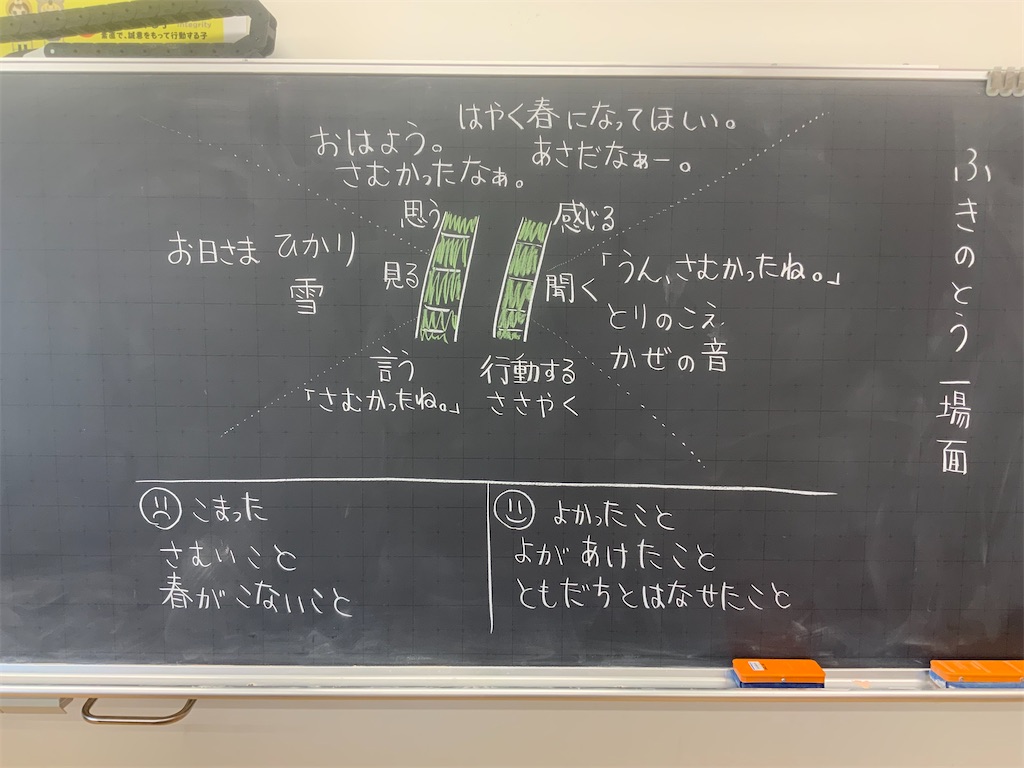 Integrity
意をもって行動する子
ふきのとう 一場面
はやく春になってほしい。
おはよう。
あさだなぁー。
さむかったなぁ。
思う
感じる
お日さま ひかり
雪
見る
聞く
「うん、さむかったね。」
とりのこえ
かぜの音
言う
「さむかったね。」
行動する
ささやく
こまった
さむいこと
春がこないこと
よかったこと
よがあけたこと
ともだちとはなせたこと